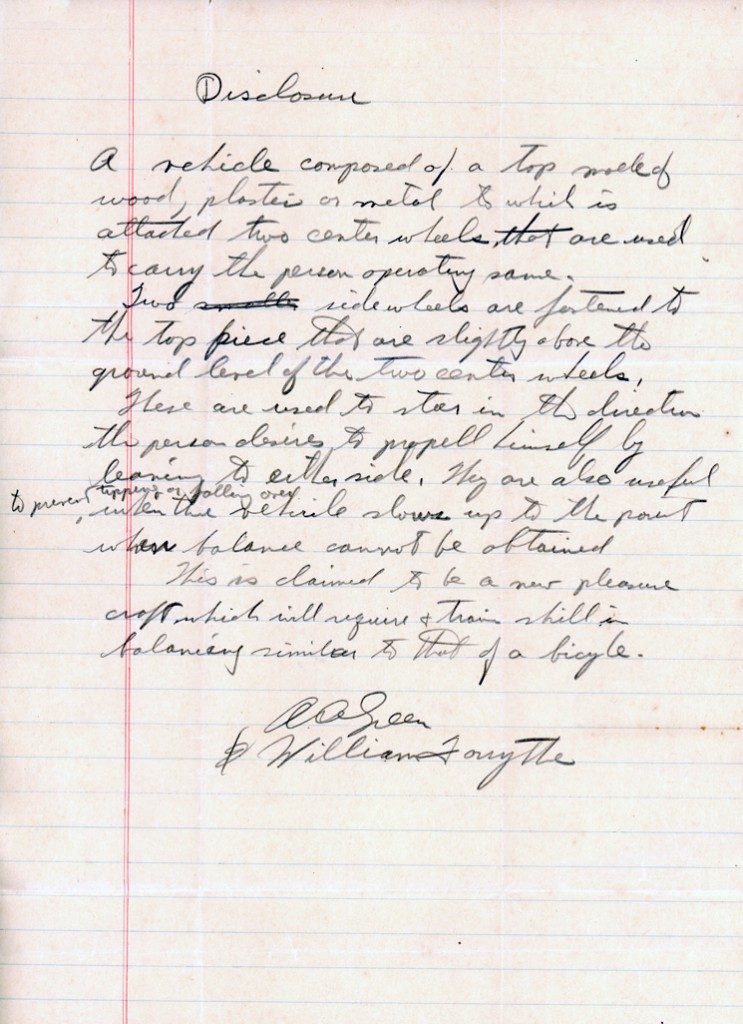 Disclosure
A vehicle composed of a top made of
wood, plastic or metal to which is
attached two center wheels, that are used
to carry the person operating same.
Two side wheels are fastened to
the top piece that are slightly above the
ground level of the two center wheels.
These are used to steer in the direction
the person desires to propell himself by
leaning to either side. They are also useful
to prevent tipping or falling over
, when the vehicle slows up to the point
when balance cannot be obtained
This is claimed to be a new pleasure
craft which will require & train skill in
balancing similar to that of a bicycle.
A.A. Green
& William Forsythe